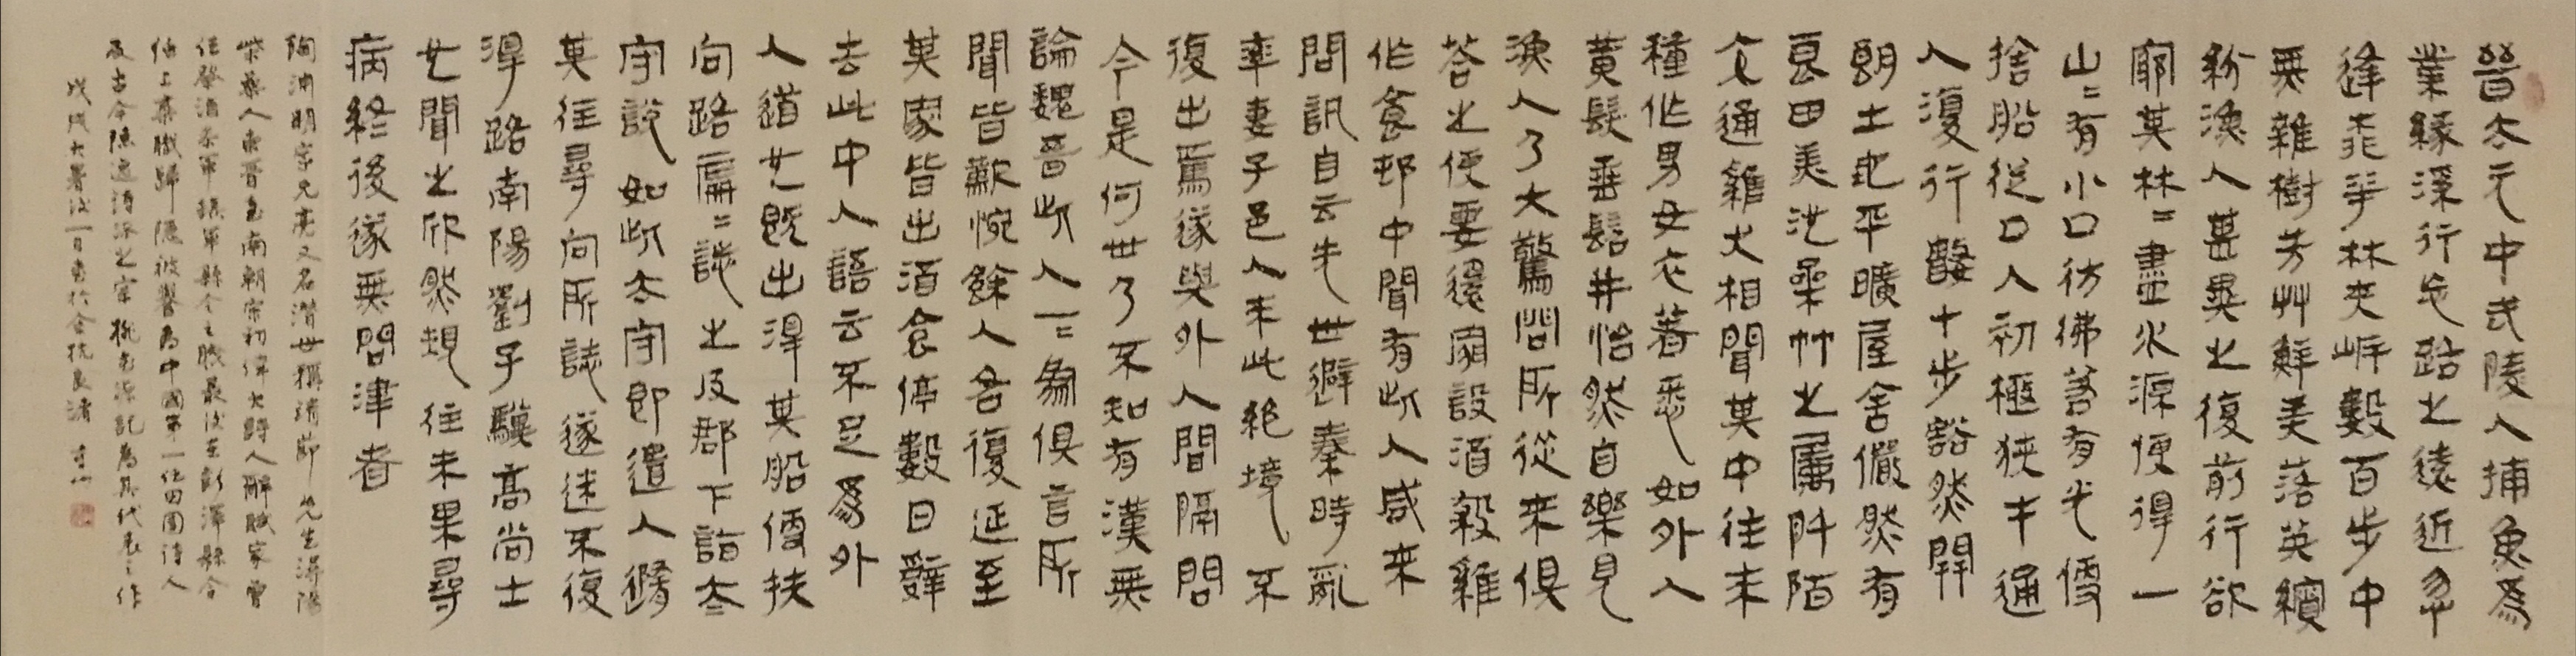 晉太元中武陵人捕魚為
業緣溪行忘路之遠近忽
逢桃華林夾岸數百步中
無雜樹芳艸鮮美落英繽
紛漁人甚異之復前行欲
窮其林林盡水源便得一
山山有小口彷彿若有光便
捨船從口入初極狹才通
人復行數十步豁然開
朗土地平曠屋舍儼然有
良田美池桑竹之屬阡陌
交通雞犬相聞其中往來
種作男女衣著悉如外人
黃髮垂髫並怡然自樂見
漁人乃大驚問所從來俱
荅之便要還家設酒殺雞
作食邨中聞有此人咸來
問訊自云先世避秦時亂
率妻子邑人來此絕境不
復出焉遂與外人間隔問
今是何世乃不知有漢無
論魏晉此人一一為俱言所
聞皆歎惋餘人各復延至
其家皆出酒食停數日辭
去此中人語云不足為外
人道也既出得其船便扶
向路扁扁誌之及郡下詣太
守說如此太守即遣人隨
其往尋向所誌遂迷不復
得路南陽劉子驥高尚士
也聞之欣然規往未果尋
病終後遂無問津者
陶淵明字元亮又名潛世稱靖節先生潯陽
柴桑人東晉至南朝宋初偉大詩人辭賦家曾
任祭酒參軍鎮軍縣令之職最後至彭澤縣令
便上棄職歸隱被譽為中國第一位田園詩人
及古今隱逸詩派之宗桃花源記為其代表之作
戊戌大暑後一日書於余杭良渚